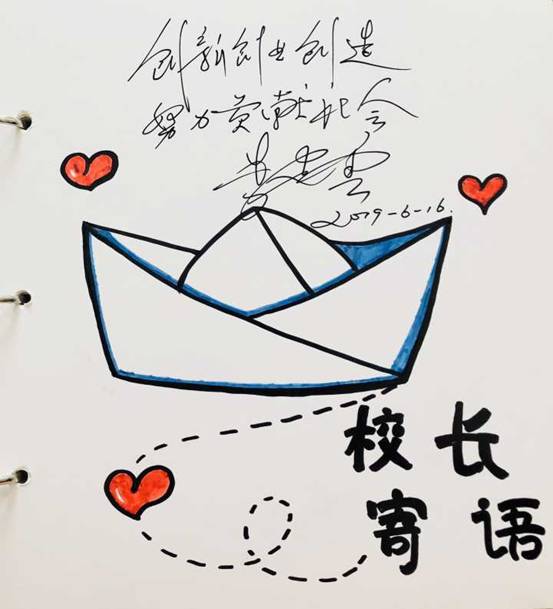 创新创业创造
努力贡献社会
2019-6-16.
校长
寄语